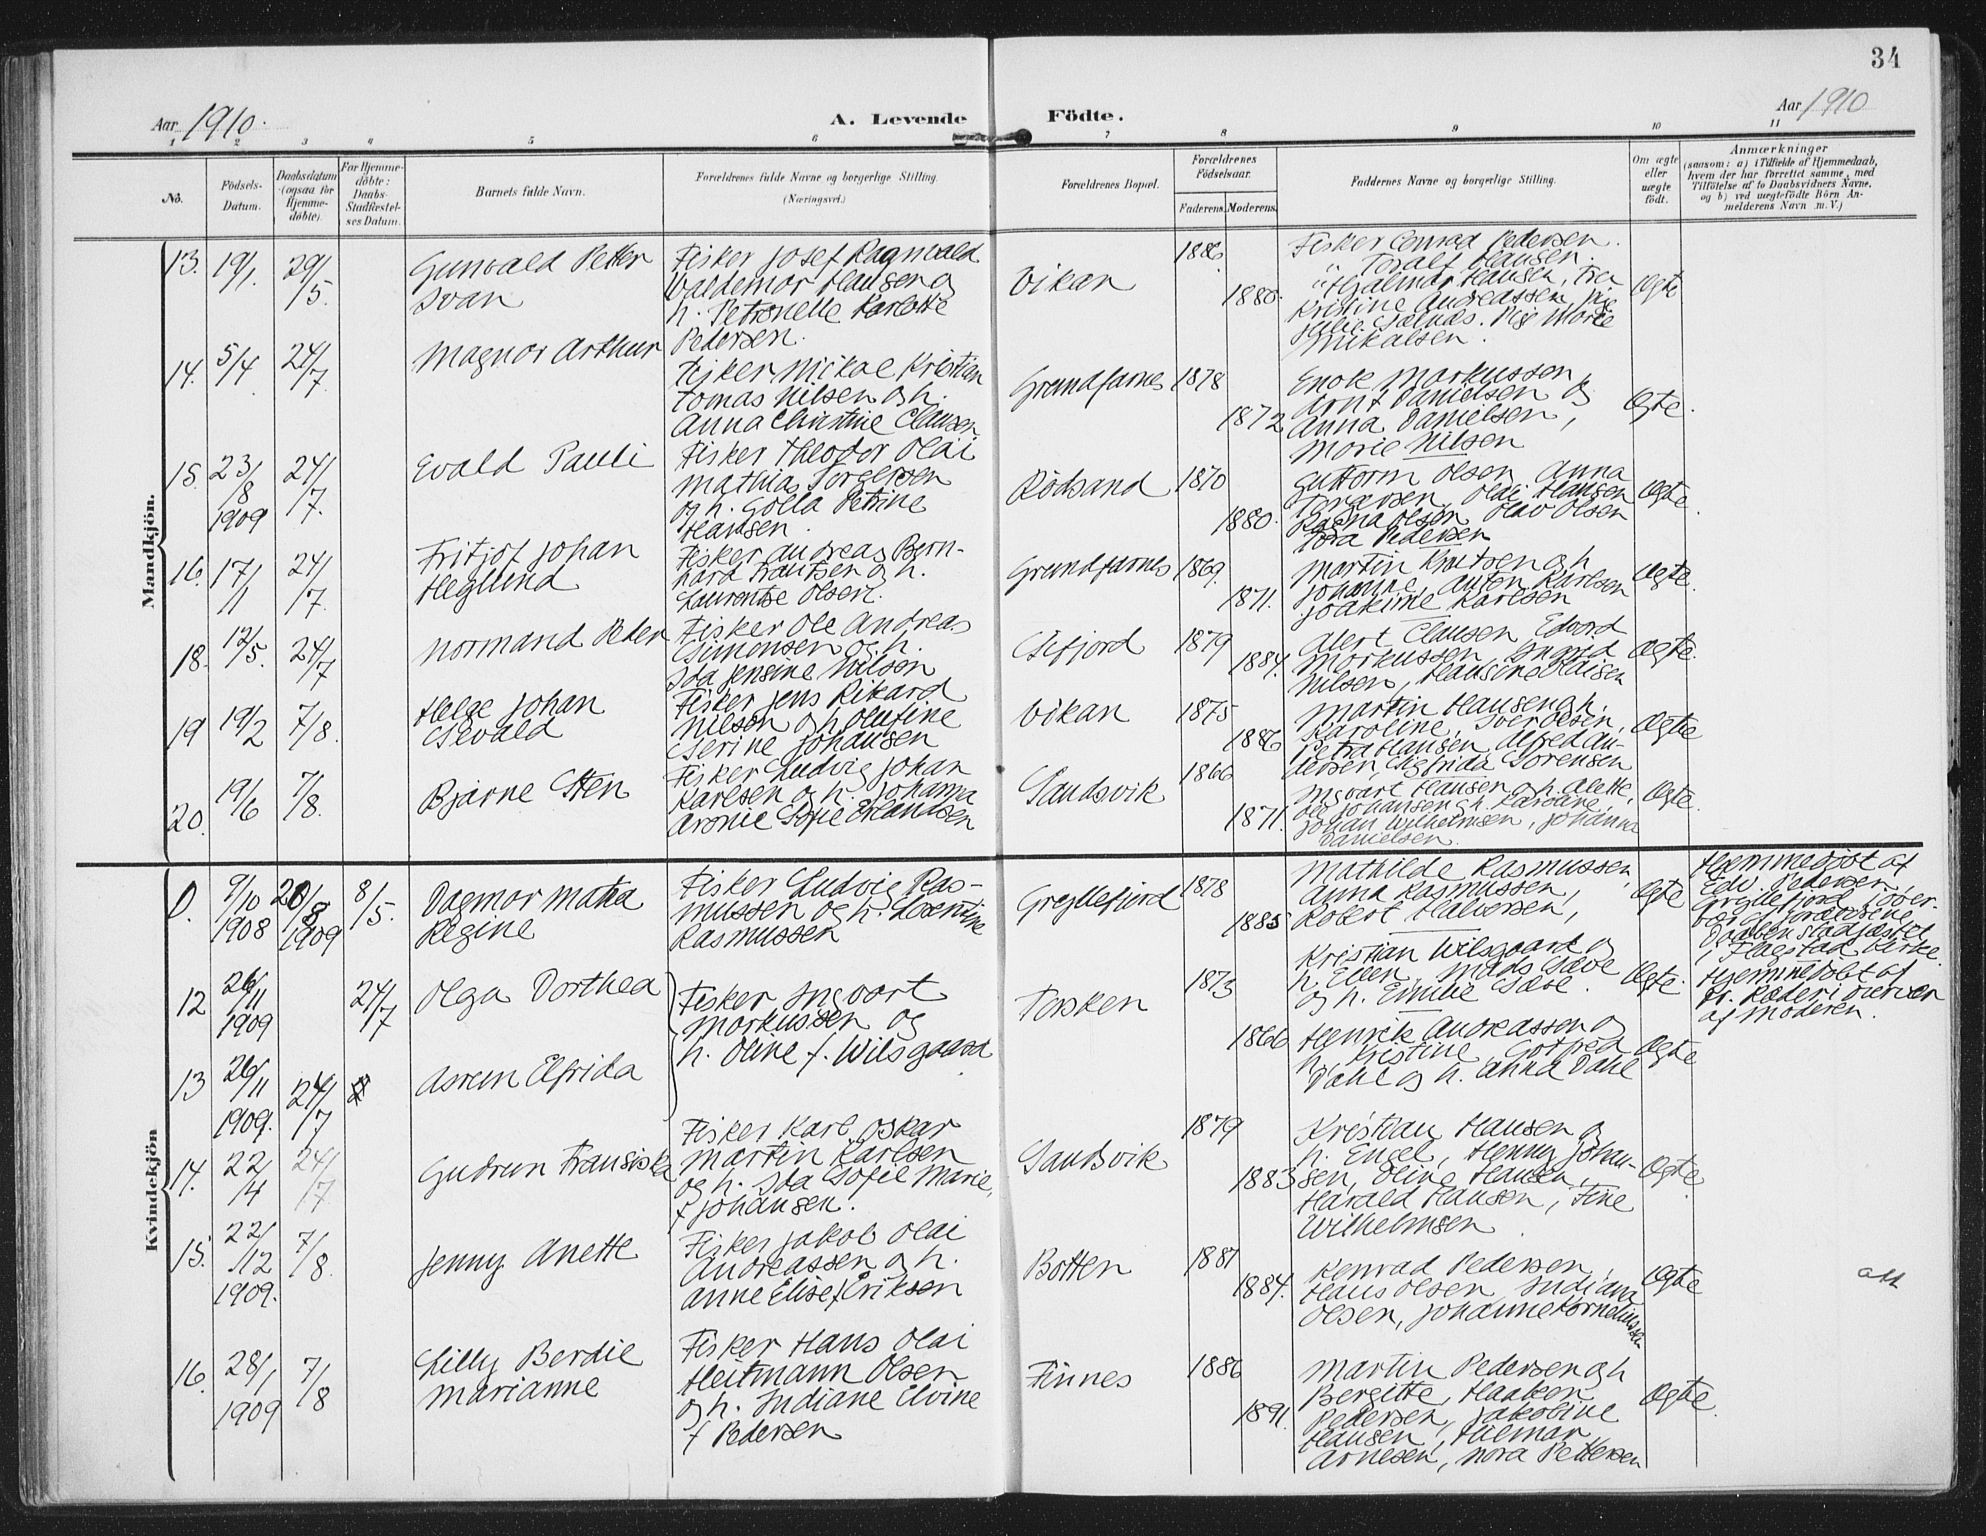 34
Aar 1910.
A. Levende
Födte.
Aar 1910
1 2 3 4 5 6 7 8 9 10 11
No.
Födsels-
Datum.
Daabsdatum
(ogsaa for
Hjemme-
döbte).
For Hjemme-
döbte:
Daabs-
Stadfæstel-
ses Datum.
Barnets fulde Navn.
Forældrenes fulde Navne og borgerlige Stilling.
(Næringsvei.)
Forældrenes Bopæl.
Forældrenes
Födselsaar.
Faderens.
Moderens.
Faddernes Navne og borgerlige Stilling.
Om ægte
eller
uægte
födt.
Anmærkninger
(saasom: a) i Tilfælde af Hjemmedaab,
hvem der har forrettet samme, med
Tilföielse af to Daabsvidners Navne,
og b) ved uægte födte Börn An-
melderens Navn m. V.)
Mandkjön.
13. 19/1. 29/5.
Gunvald Petter
Ivan
Fisker Josef Ragnvald
Valdemor Hansen og
h. Petronelle Karlotte
Pedersen.
Vikan
1886
1880.
Fisker Conrad Pedersen.
" Toralf Hansen.
" Hjalmar Hansen, Fru
Kristine Andreassen, pige
Julie Pige Marie
Mikalsen.
Ægte
14. 5/4 24/7.
Magnor Arthur
Fisker Mikal Kristian
Tomas Nilsen og h.
Anna Christine Clausen
Grundfarnes
1878
1872
Enok Markussen,
Arnt Danielsen og
Anna Danielsen,
Marie Nilsen
Ægte.
15. 23/8 1909 24/7.
Evald Pauli
Fisker Theodor Olai
Mathias Torgersen
og h. Golla Petrine
Hansen.
Rödsand
1870
1880.
Guttorm Olsen, Anna
Torgersen, Olai Hansen
Ragna Olsen, Olav Olsen
Tora Pedersen
Ægte.
16. 17/11 24/7.
Fritjof Johan
Heglund
Fisker Andreas Bern-
hard Frantsen og h.
Laurentse Olsen.
Grundfarnes
1869.
1871.
Martin Knutsen og h.
Johanne, Anton Karlsen
Joakime Karlsen
Ægte.
18. 12/5. 24/7
Normand Peder
Fisker Ole Andreas
Simonsen og h.
Ida Jensine Nilsen
Sifjord
1879
1884.
Alert Clausen, Edvard
Markussen, Ingrid
Nilsen, Hansine Hansen
Ægte.
19 19/2 7/8.
Helge Johan
Sevald
Fisker Jens Rikard
Nilsen og h. Olufine
Serine Johansen
Vikan
1875
1886
Martin Hansen og h.
Karoline, Iver Olsen,
Petra Hansen, Alfred An-
dersen, Sigfrida Sörensen
Ægte
20. 19/6 7/8.
Bjarne Sten
Fisker Ludvig Johan
Karlsen og h. Johanna
Aronie Sofie Erlandsen
Sandsvik
1866
1871.
Ingvart Hansen og h. Alette,
Ole Johansen og h. Karoline,
Johan Wilhelmsen, Johanna
Danielsen.
Ægte.
Kvindekjön
0. 9/10 1908 20/8 1909 8/5.
Dagmor Matia
Regine
Fisker Ludvig Ras-
mussen og h. Lorentine
Rasmussen
Gryllefjord
1878
1885
Mathilde Rasmussen,
Anna Rasmussen,
Robert Halvorsen,
Ægte
Hjemmedöbt af
Edv. Pedersen,
Gryllefjord, i over-
vær af forældrene
Daaben stadfæstet
i Flagstad kirke.
12 26/11 1909 24/7
Olga Dorthea
Fisker Ingvart
Markussen og
h. Oline f. Wilsgaard
Torsken
1873
1866
Kristian Wilsgaard og
h. Ellen, Mads Sæve
og h. Emilie Sæve.
Ægte.
Hjemmedöbt af
i nærvær
af moderen.
13 26/11 1909. 24/7
Elfrida
Henrik Andreassen og
h. Kristine, Gotfred
Dahl og h. Anna Dahl
Ægte
14. 22/4 24/7
Gudrun Fransiska
Fisker Karl Oskar
Martin Karlsen
og h. Ida Sofie Marie,
f Johansen.
Sandsvik
1879
1883
Kristian Hansen og
h. Engel, Henny Johan-
sen, Oline Hansen,
Harald Hansen, Fine
Wilhelmsen.
Ægte
15. 22/12 1909. 7/8.
Jenny Anette
Fisker Jakob Olai
Andreassen og h.
Anne Elise f Eriksen
Botten
1881
1884.
Konrad Pedersen,
Hans Olsen, Indiana
Olsen, Johanne Korneliussen
Ægte
att
16. 28/1 1909 7/8
Lilly Berdie
Marianne
Fisker Hans Olai
Heitmann Olsen
og h. Indiane Elvine
f Pedersen
Finnes
1886
1891.
Martin Pedersen og h
Bergitte, Haakon
Pedersen, Jakobine
Hansen, Hilmar
Arnesen, Nora Pettersen
Ægte.